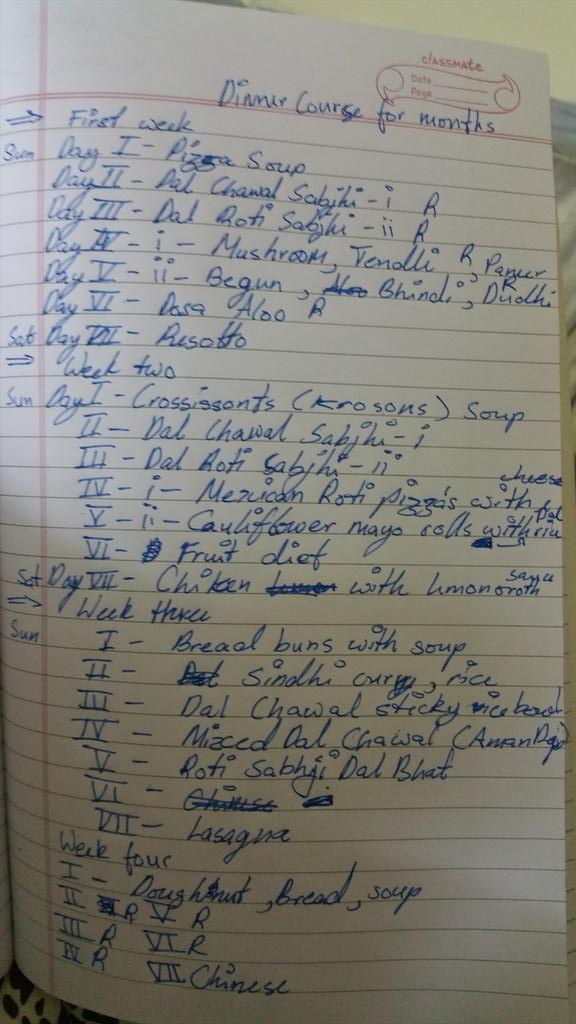 classmate
Date
Page
Dinner Course for months
⇒ First week
Sun Day I - Pizza Soup
Day II - Dal Chawal Sabjhi - i R
Day III - Dal Roti Sabjhi - ii R
Day IV - i - Mushroom, Tendli R, Paneer
Day V - ii - Begun, Bhindi, Dudhi R
Day VI - Dosa Aloo R
Sat Day VII - Resotto
⇒ Week two
Sun Day I - Crossissonts (Krosons) Soup
II - Dal Chawal Sabjhi - i
III - Dal Roti Sabjhi - ii
IV - i - Mexican Roti pizza's with cheese
V - ii - Cauliflower mayo rolls with
VI - Fruit diet
Sat Day VII - Chiken with
⇒ Week three
Sun I - Bread buns with soup
II - Sindhi curry, rice
III - Dal Chawal sticky rice
IV - Mixed Dal Chawal (Aman
V - Roti Sabhji Dal Bhat
VI -
VII - Lasagna
Week four
I - Doughnut, Bread, soup
II R V R
III R VI R
IV R VII Chinese